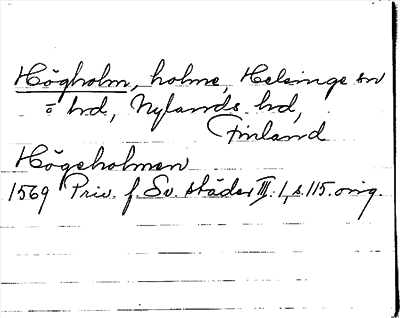 Högholm, holme, Helsinge sn
o hd, Nylands hd,
Finland
Högeholmen
1569 Priv. f. Sv. städer III. 1, s. 115. orig.